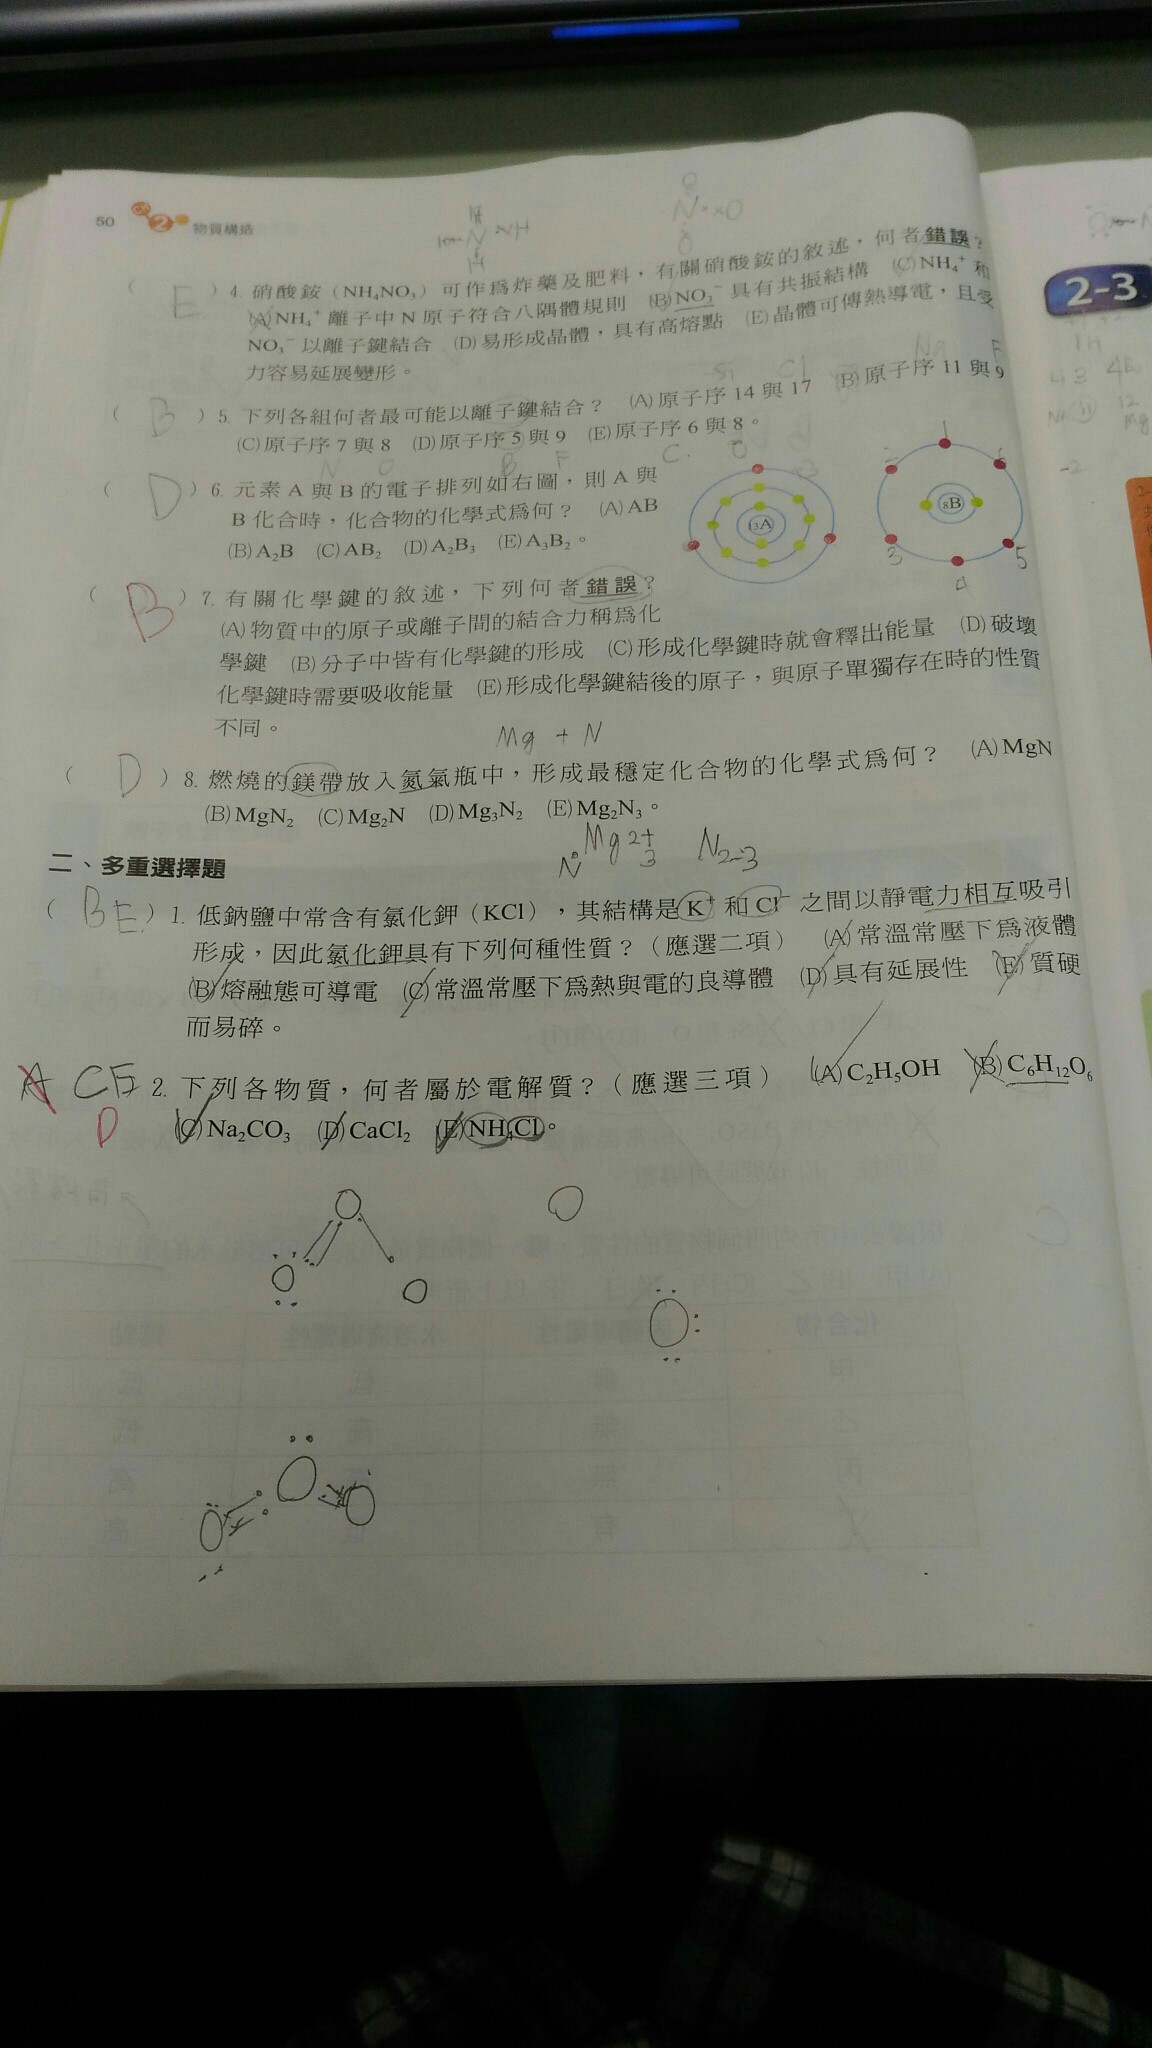 50 2 物質構造
( E ) 4. 硝酸銨（NH₄NO₃）可作為炸藥及肥料，有關硝酸銨的敘述，何者錯誤？
(A) NH₄⁺ 離子中 N 原子符合八隅體規則 (B) NO₃⁻ 具有共振結構 (C) NH₄⁺ 和
NO₃⁻ 以離子鍵結合 (D) 易形成晶體，具有高熔點 (E) 晶體可傳熱導電，且受
力容易延展變形。
( B ) 5. 下列各組何者最可能以離子鍵結合？ (A) 原子序 14 與 17 (B) 原子序 11 與 9
(C) 原子序 7 與 8 (D) 原子序 5 與 9 (E) 原子序 6 與 8。
N O B F C O
( D ) 6. 元素 A 與 B 的電子排列如右圖，則 A 與
B 化合時，化合物的化學式為何？ (A) AB
(B) A₂B (C) AB₂ (D) A₂B₃ (E) A₃B₂。
₁₃A
₈B
1
3
4
5
( B ) 7. 有關化學鍵的敘述，下列何者錯誤？
(A) 物質中的原子或離子間的結合力稱為化
學鍵 (B) 分子中皆有化學鍵的形成 (C) 形成化學鍵時就會釋出能量 (D) 破壞
化學鍵時需要吸收能量 (E) 形成化學鍵結後的原子，與原子單獨存在時的性質
不同。
Mg + N
( D ) 8. 燃燒的鎂帶放入氮氣瓶中，形成最穩定化合物的化學式為何？ (A) MgN
(B) MgN₂ (C) Mg₂N (D) Mg₃N₂ (E) Mg₂N₃。
二、多重選擇題
( BE ) 1. 低鈉鹽中常含有氯化鉀（KCl），其結構是 K⁺ 和 Cl⁻ 之間以靜電力相互吸引
形成，因此氯化鉀具有下列何種性質？（應選二項） (A) 常溫常壓下為液體
(B) 熔融態可導電 (C) 常溫常壓下為熱與電的良導體 (D) 具有延展性 (E) 質硬
而易碎。
A CE 2. 下列各物質，何者屬於電解質？（應選三項） (A) C₂H₅OH (B) C₆H₁₂O₆
D (C) Na₂CO₃ (D) CaCl₂ (E) NH₄Cl。
2-3